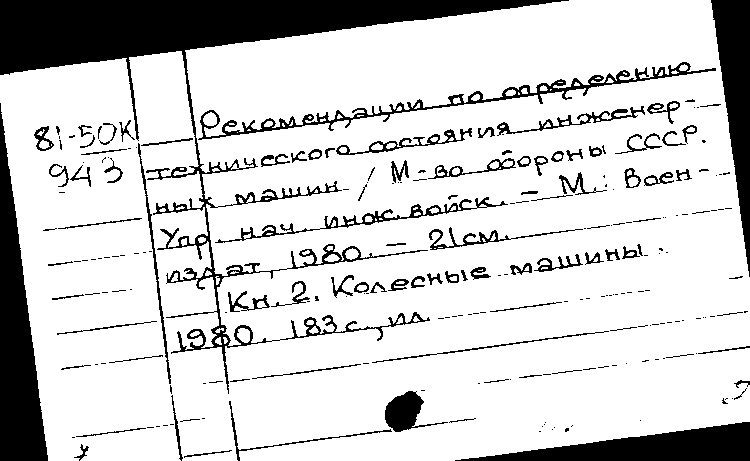 81-50К
943
Рекомендации по определению
технического состояния инженер-
ных машин / М-во обороны СССР.
Упр. нач. инж. войск. – М.: Воен-
издат, 1980. – 21см.
Кн. 2. Колесные машины.
1980. 183с., ил.